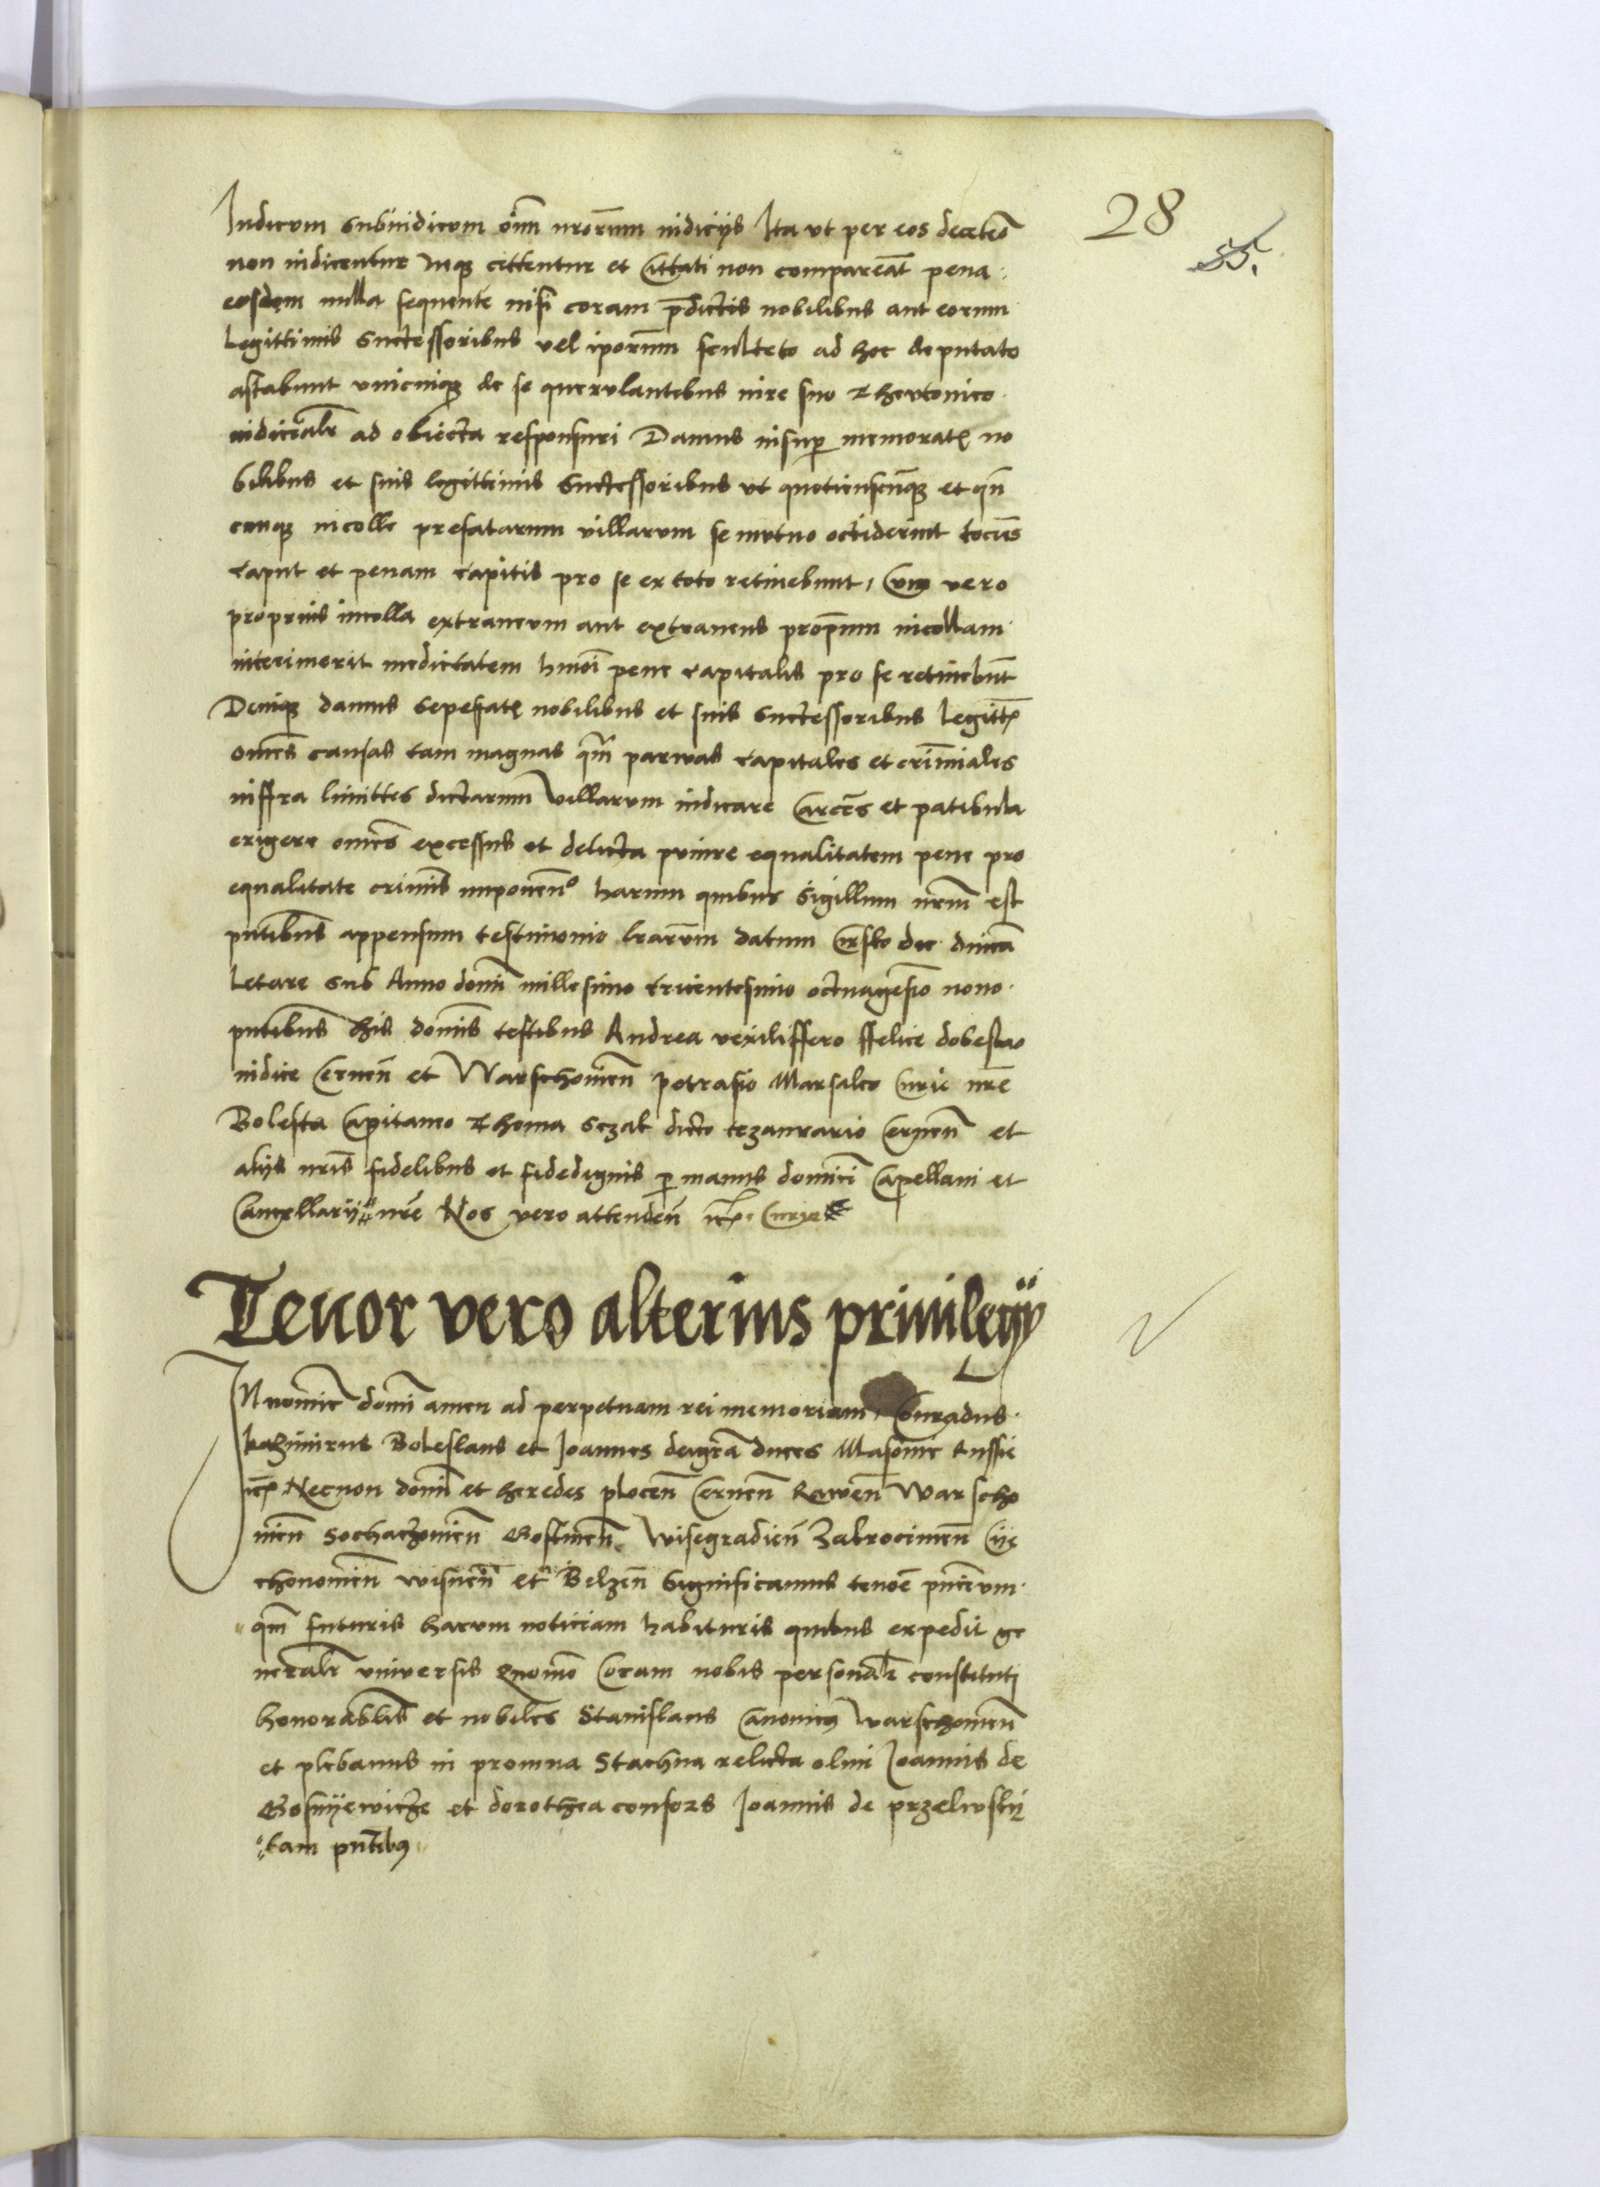 28
55.
Iudicum subiudicum om̃ium nrõrum iudicijs Ita ut per eos decetero
non iudicentur Inqꝫ cittentur et Cittati non compareãt pena
eosdem nulla sequente nisi coram p̃dictis nobilibus aut eorum
Legittimis Successoribus vel ip̃orum sculteto ad hoc deputato
astabunt unicuiqꝫ de se querulantibus iure suo Theutonico
iudicialr̃ ad obiecta responsuri Damus insup memorat no
bilibus et suis legittimis Successoribus ut quotienscũqꝫ et qñ
cunqꝫ incolle prefatarum villarum se mutuo occiderint tocies
caput et penam capitis pro se ex toto retinebunt, Cum vero
proprius incolla extraneum aut extraneus prop̃rium incollam
interimerit medietatem hmõi pene capitalis pro se retinebũt
Deniqꝫ damus sepefat nobilibus et suis Successoribus Legittĩ
om̃es causas tam magnas qm̃ paruas capitales et crĩminales
inffra limittes dictarum Villarum iudicare Carcẽs et patibula
erigere om̃es excessus et delicta punire equalitatem pene pro
equalitate crimĩs imponenº harum quibus Sigillum nrm̃ est
pñtibus appensum testimonio lrãrum datum Crsko die dñica
Letare sub Anno domĩ millesimo tricentesimo octuagesiõ nono
pñtibus his domĩs testibus Andrea vexiliffero ffelice dobeslao
iudice Cernen̄ et Warschouien̄ Petrasio Marsalco Curie nrẽ
Bolesta Capitaneo Thoma Sczal dicto tezaurario Cernen̄ et
alijs nrĩs fidelibus et fidedignis p manus dominici Capellani et
Cancellarij nrẽ Nos vero attenden̄ ꝛc. Curie
Tenor vero alterius priuilegij
IN nomie domĩ amen ad perpetuam rei memoriam, Conradus
kazimirus Boleslaus et Joannes deigrã duces Masouie Russie
ꝛc Necnon domĩ et heredes plocen̄ Cernen̄ Rawen̄ Warscho
uien̄ Sochaczouien̄ Gostinen̄ Wisegradien̄ Zakrocimen̄ Cije
chonouien̄ wisnen̄ et Belzen̄ Significamus tenore pñcium
qm̃ futuris harum noticiam habituris quibus expedit ge
neralr̃ vniuersis Quomo Coram nobis personalr̃ constituti
honorabilis et nobiles Stanislaus Canonicus Warschouien̄
et plebanus in promna Stachna relicta olim Joannis de
Gosnijewicze et dorothea consors Joannis de przeluskij
tam pñtibꝰ